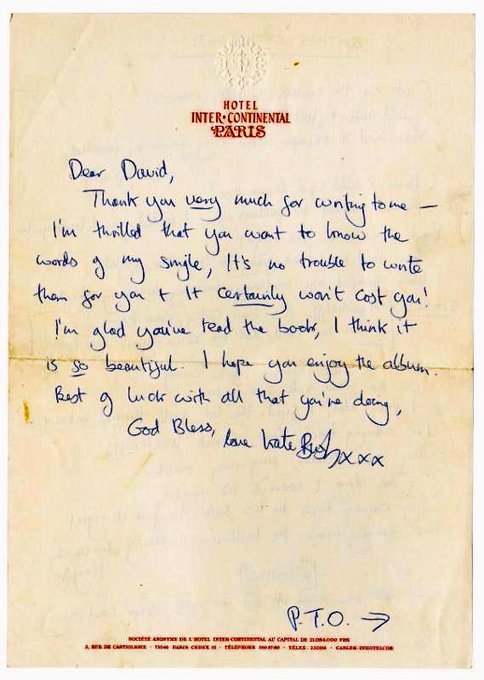 HOTEL
INTER•CONTINENTAL
PARIS
Dear David,
Thank you very much for writing to me –
I'm thrilled that you want to know the
words of my single, It's no trouble to write
them for you & It certainly won't cost you!
I'm glad you've read the book, I think it
is so beautiful. I hope you enjoy the album.
Best of luck with all that you're doing,
God Bless, love Kate Bush xxx
P.T.O. →
SOCIÉTÉ ANONYME DE L'HOTEL INTER-CONTINENTAL AU CAPITAL DE 21.084.000 FRS
3, RUE DE CASTIGLIONE - 75040 PARIS CEDEX 01 - TÉLÉPHONE - TELEX : 220114 - CABLES: INHOTELCOR